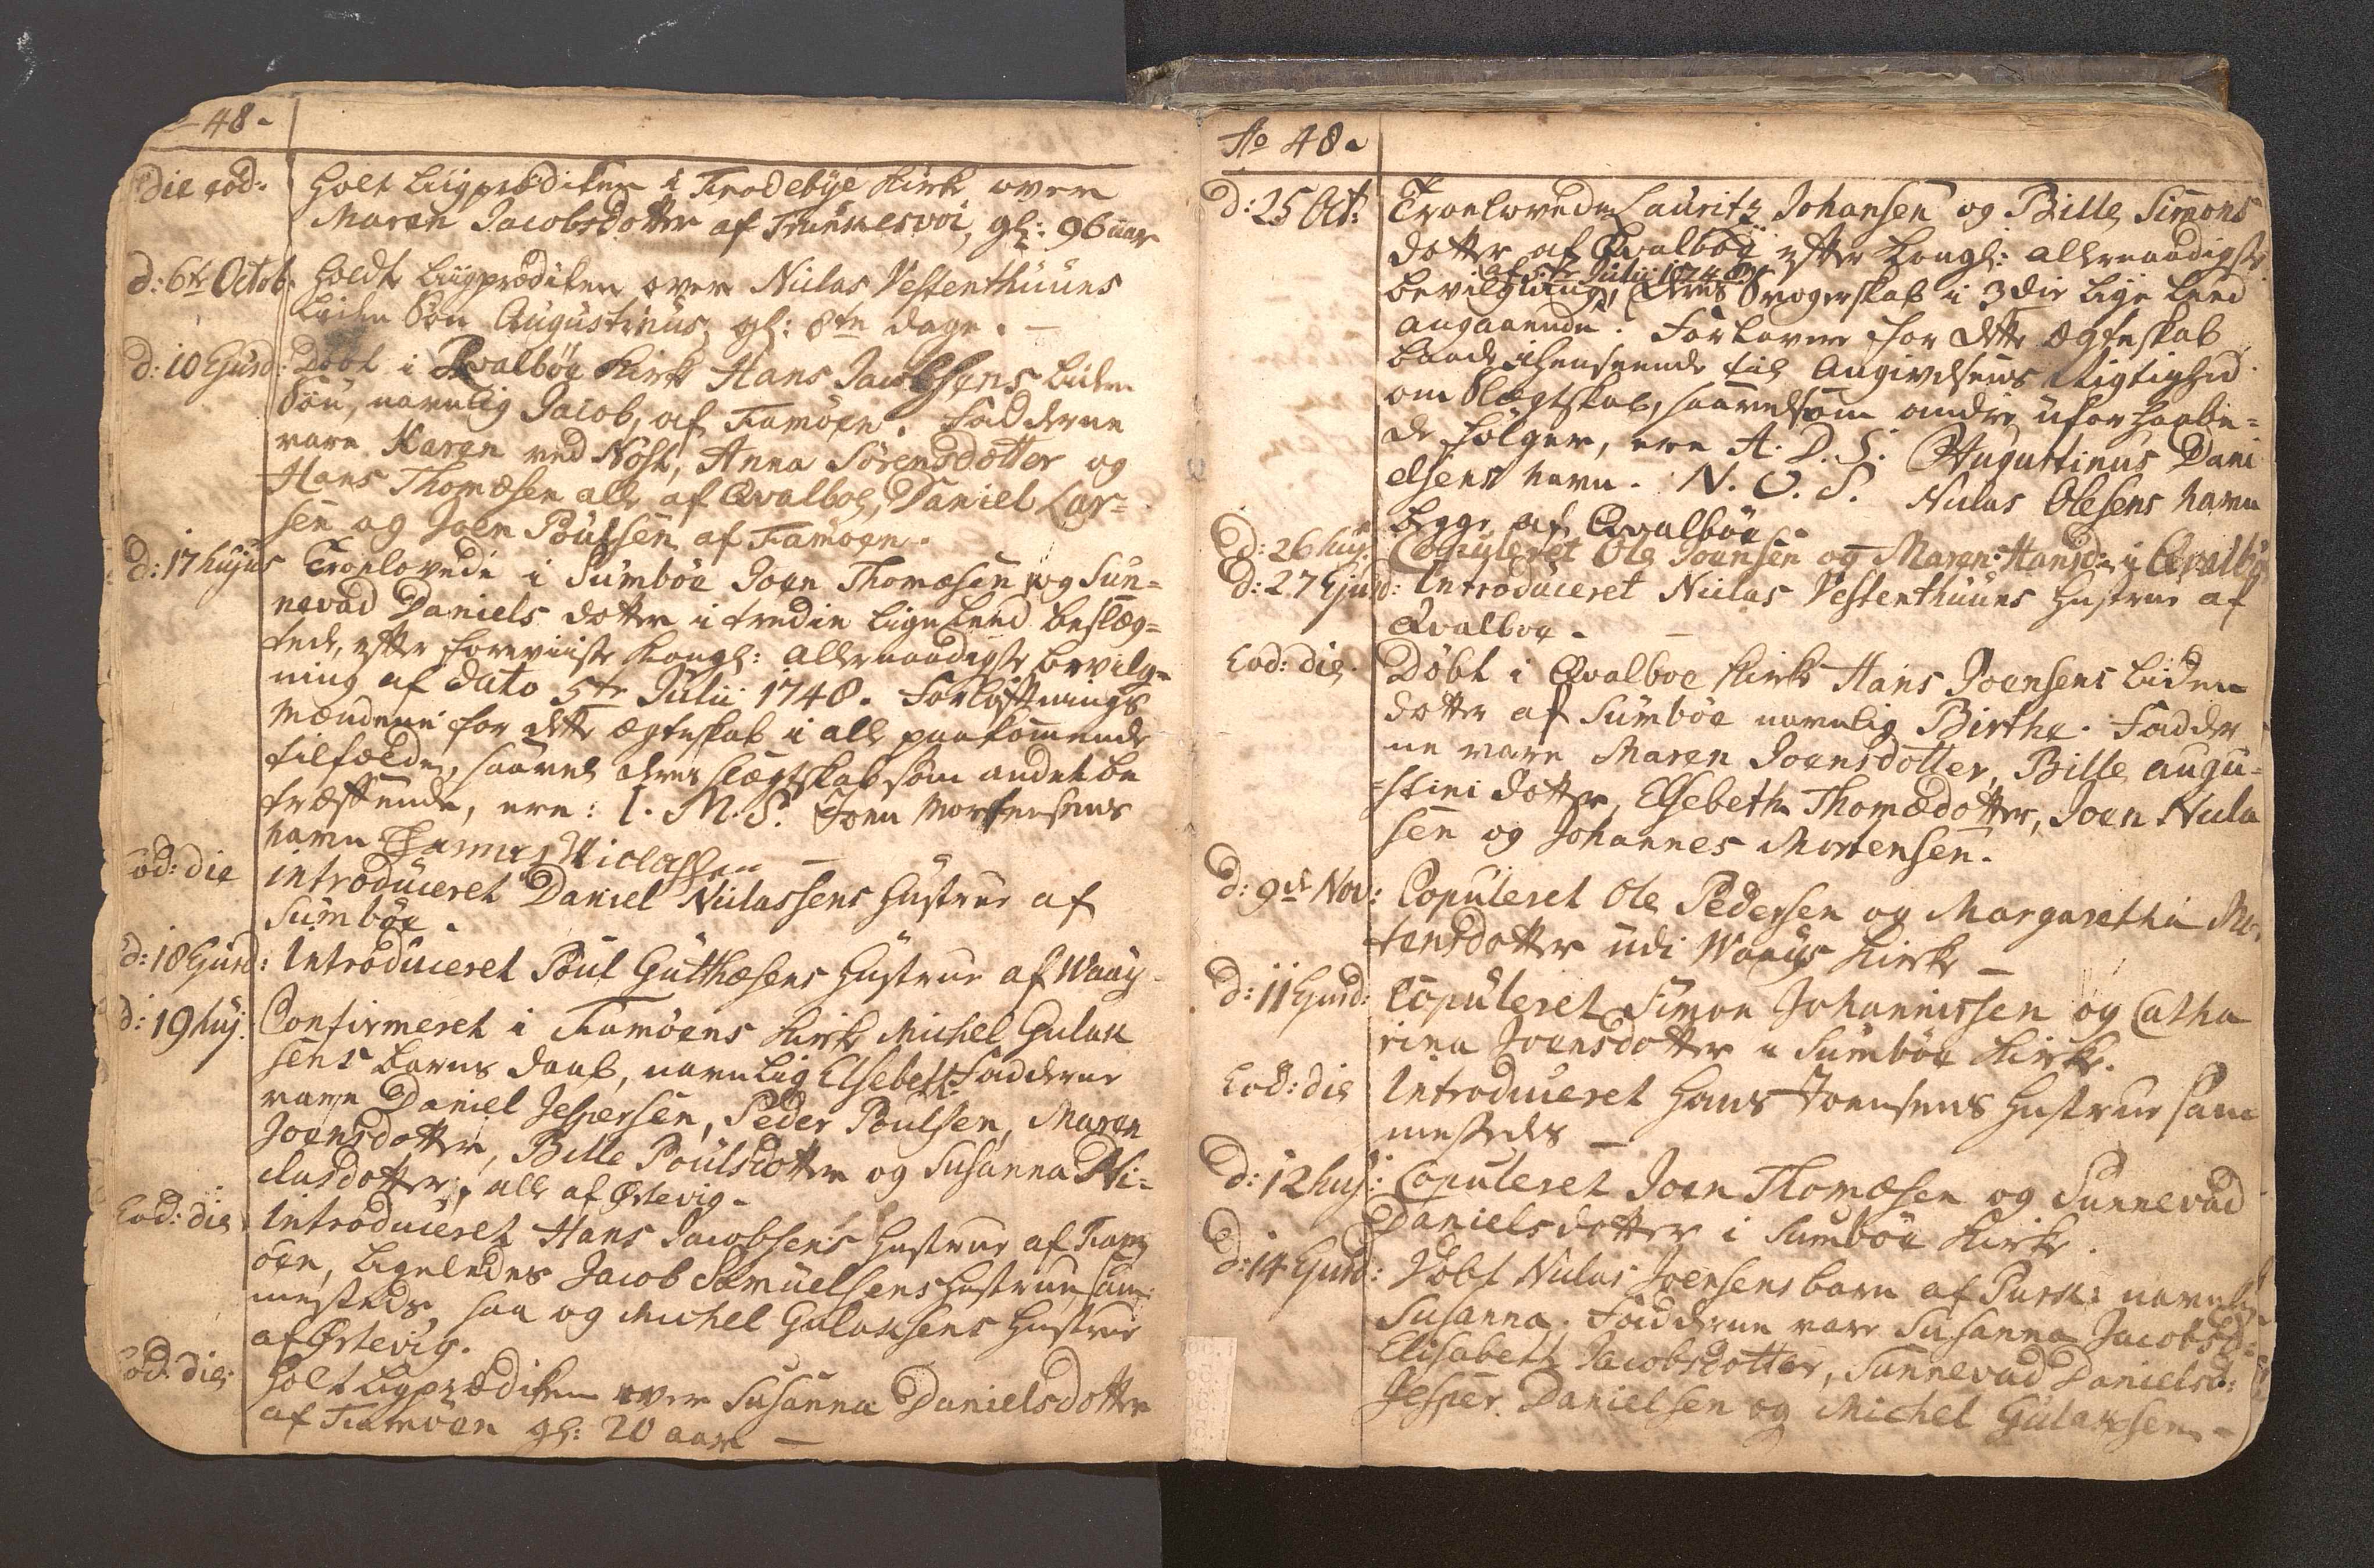 48 -
Die eod:
Holt Liigprædiken i Frodebÿe Kirke over
Maren Jacobsdotter af gl: 96 aar
d: 6te Octob:
Holdt Liigprædiken over Niclas Vestenthuuns
liiden Søn Augustinus, gl: 8te dage. —
d: 10 Ejusd:
Døbt i Qvalbøe Kirke Hans Jacobsens liiden
Søn, navnlig Jacob, af Famöen. Fadderne
vare Karen ved Nöst, Anna Sörensdotter og
Hans Thomæsen alle af Qvalboe, Daniel Lar=
sen og Joen Poulsen af Famöen.
d: 17 hujus
Troelovede i Sumböe Joen Thomæsen og Sun=
nevad Daniels dotter i tredie lige Leed beslæg=
tede, efter foreviiste Kongl: allernaadigste bevilg=
ning af dato 5te Julii 1748. Forløftnings
Mændene for dette ægteskab i all paakommende
tilfælde, saavel deres slægtskab som andet be
træffende, ere: I. M. S. Joen Mortensens
navn Niclassen
Eod: die
introduceret Daniel Niclassens Hustrue af
Sumböe.
d: 18 Ejusd:
Introduceret Poul Gutthæsens Hustrue af Waaÿ
d: 19 huj:
Confirmeret i Famöens Kirke Michel Gulak
sens barns daab, navnlig Elsebeth. Fadderne
vare Daniel Jespersen, Peder Poulsen, Maren
Joensdotter, Bille Poulsdotter og Susanna Ni=
clasdotter, alle af Ørdevig -
Eod: die
Introduceret Hans Jacobsens Hustrue af Fam
öen, ligeledes Jacob Samuelsens Hustrue sam=
mesteds, saa og Michel Gulaksens Hustrue
af Ørdevig.
Eod: die
Holt Ligprædiken over Susanna Danielsdotter
af Famöen gl: 20 aar —
Ao 48 -
d: 25 Oct:
Troelovede Lauritz Johansen og Bille Simons
dotter af Qvalböe efter Kongl: allernaadigste
af 5te Julii 1748
bevilgning, deres Svogerskab i 3die lige Leed
angaaende. Forlovere for dette Ægteskab
baade i henseende til Angivelsens Rigtighed
om Slægtskab, saavelsom andre uforhaabe=
de følger, ere A. D. S. Augustinus Dani
elsens navn. N. O. S. Niclas Olesens navn
begge af Qvalböe
d: 26 huj:
Copuleret Ole Joensen og Maren Hansd: i Qvalbø
d: 27 Ejusd:
Introduceret Niclas Vestenthuuns Hustrue af
Qvalboe -
Eod: die
Døbt i Qvalboe Kirke Hans Joensens liiden
dotter af Sumböe navnlig Birthe. Fadder
ne vare Maren Joensdotter, Bille Augu=
stini dotter, Elsebeth Thomædotter, Joen Nicla
sen og Johannes Mortensen.
d: 9de Nov:
Copuleret Ole Pedersen og Margaretha Mor
tensdotter udi Waaÿs Kirke —
d: 11 Ejusd:
Copuleret Simon Johannissen og Catha
rina Joensdotter i Sumböe Kirke.
Eod: die
Introduceret Hans Joensens Hustrue sam
mesteds —
d: 12 huj:
Copuleret Joen Thomæsen og Sunnevad
Danielsdotter i Sumböe Kirke.
d: 14 Ejusd:
Döbt Niclas Joensens barn af navnlig
Susanna. Fadderne vare Susanna Jacobsd:
Elisabeth Jacobsdotter, Sunnevad Danielsd:
Jesper Danielsen og Michel Gulaksen -